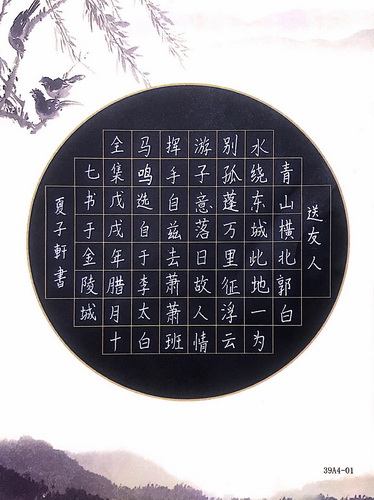 送友人
青山横北郭白
水绕东城此地一为
别孤蓬万里征浮云
游子意落日故人情
挥手自兹去萧萧班
马鸣选自于李太白
全集戊戌年腊月十
七书于金陵城
夏子軒書
39A4-01